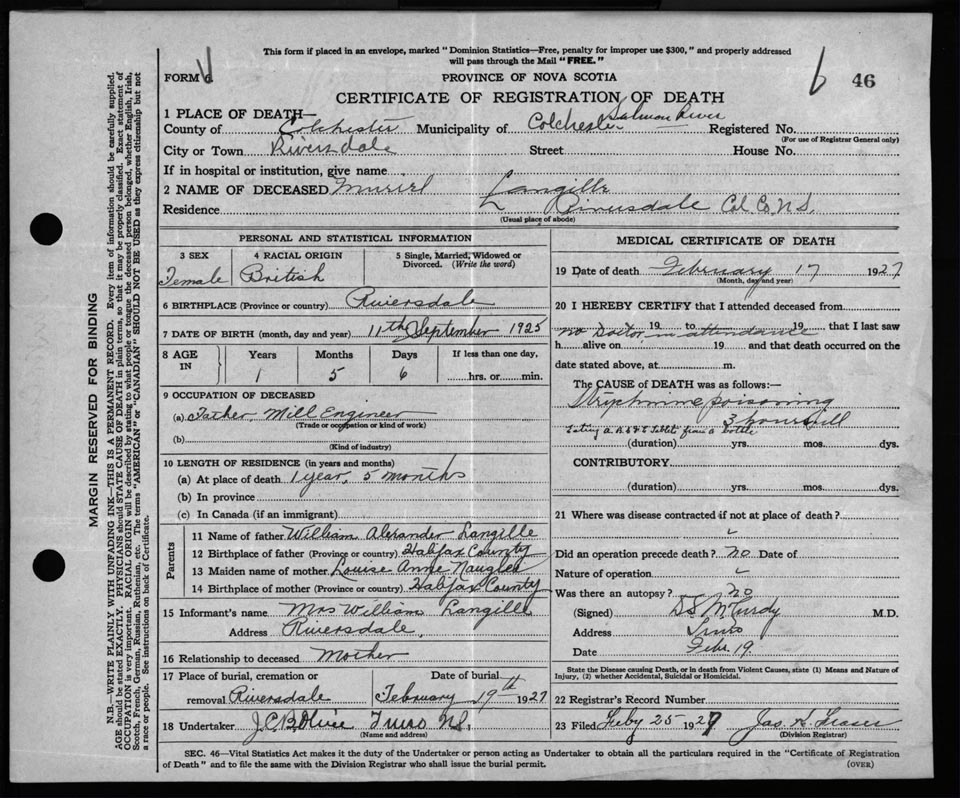 This form if placed in an envelope, marked "Dominion Statistics—Free, penalty for improper use $300," and properly addressed
will pass through the Mail "FREE."
FORM 6
PROVINCE OF NOVA SCOTIA
6 46
CERTIFICATE OF REGISTRATION OF DEATH
1 PLACE OF DEATH—
Salmon River
County of Colchester Municipality of Colchester Registered No.
(For use of Registrar General only)
City or Town Riversdale Street House No.
If in hospital or institution, give name
2 NAME OF DECEASED Muriel Langille
Residence Riversdale Col. Co. N.S.
(Usual place of abode)
PERSONAL AND STATISTICAL INFORMATION
3 SEX 4 RACIAL ORIGIN 5 Single, Married, Widowed or
Divorced. (Write the word)
Female British
6 BIRTHPLACE (Province or country) Riversdale
7 DATE OF BIRTH (month, day and year) 11th September 1925
8 AGE IN Years Months Days If less than one day,
1 5 6 hrs. or min.
9 OCCUPATION OF DECEASED
(a) Father, Mill Engineer
(Trade or occupation or kind of work)
(b)
(Kind of industry)
10 LENGTH OF RESIDENCE (in years and months)
(a) At place of death 1 year, 5 months
(b) In province
(c) In Canada (if an immigrant)
Parents
11 Name of father William Alexander Langille
12 Birthplace of father (Province or country) Halifax County
13 Maiden name of mother Louise Anne Naugler
14 Birthplace of mother (Province or country) Halifax County
15 Informant's name Mrs William Langille
Address Riversdale,
16 Relationship to deceased Mother
17 Place of burial, cremation or Date of burial
removal Riversdale February 19th 1927
18 Undertaker Truro N.S.
(Name and address)
MEDICAL CERTIFICATE OF DEATH
19 Date of death February 17 1927
(Month, day and year)
20 I HEREBY CERTIFY that I attended deceased from
no Doctor in attendance 19 to 19 that I last saw
h alive on 19 and that death occurred on the
date stated above, at m.
The CAUSE of DEATH was as follows:—
Strychnine poisoning
3 hours ill
Eating A.B.S & C Tablets from a bottle
(duration) yrs. mos. dys.
CONTRIBUTORY
(duration) yrs. mos. dys.
21 Where was disease contracted if not at place of death?
Did an operation precede death? no Date of
Nature of operation
Was there an autopsy? no
(Signed) D S McCurdy M.D.
Address Truro
Date Feb. 19.
State the Disease causing Death, or in death from Violent Causes, state (1) Means and Nature of
Injury, (2) whether Accidental, Suicidal or Homicidal.
22 Registrar's Record Number
23 Filed Feby 25 1927 Jas. A. Fraser
(Division Registrar)
SEC. 46—Vital Statistics Act makes it the duty of the Undertaker or person acting as Undertaker to obtain all the particulars required in the "Certificate of Registration
of Death" and to file the same with the Division Registrar who shall issue the burial permit.
(OVER)
MARGIN RESERVED FOR BINDING
N.B—WRITE PLAINLY WITH UNFADING INK—THIS IS A PERMANENT RECORD. Every item of information should be carefully supplied.
AGE should be stated EXACTLY. PHYSICIANS should STATE CAUSE OF DEATH in plain terms, so that it may be properly classified. Exact statement of
OCCUPATION is very important. RACIAL ORIGIN will be described by stating to what people or tongue the deceased person belonged, whether English, Irish,
Scotch, French, German, Russian, Ruthenian, etc. The terms "AMERICAN" or "CANADIAN" SHOULD NOT BE USED as they express citizenship but not
a race or people. See instructions on back of Certificate.